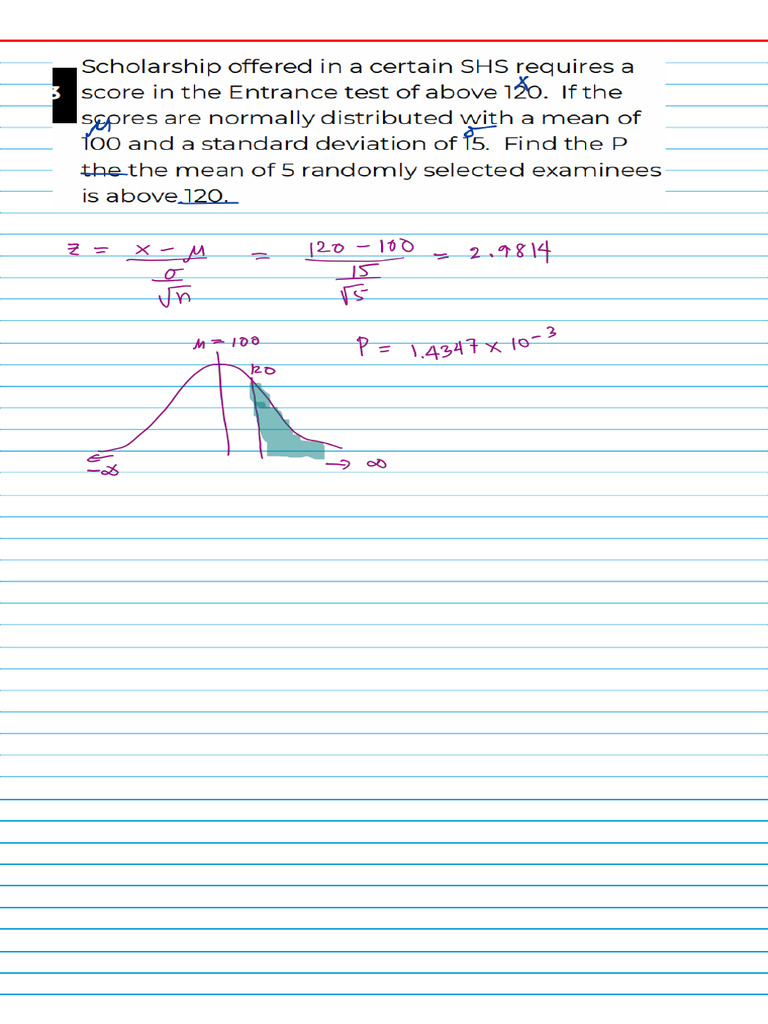 Scholarship offered in a certain SHS requires a
3 score in the Entrance test of above 120. If the
x
scores are normally distributed with a mean of
μ σ
100 and a standard deviation of 15. Find the P
the the mean of 5 randomly selected examinees
is above 120.
z = x - μ / σ / √n = 120 - 100 / 15 / √5 = 2.9814
μ = 100 P = 1.4347 x 10⁻³
120
-∞ → ∞